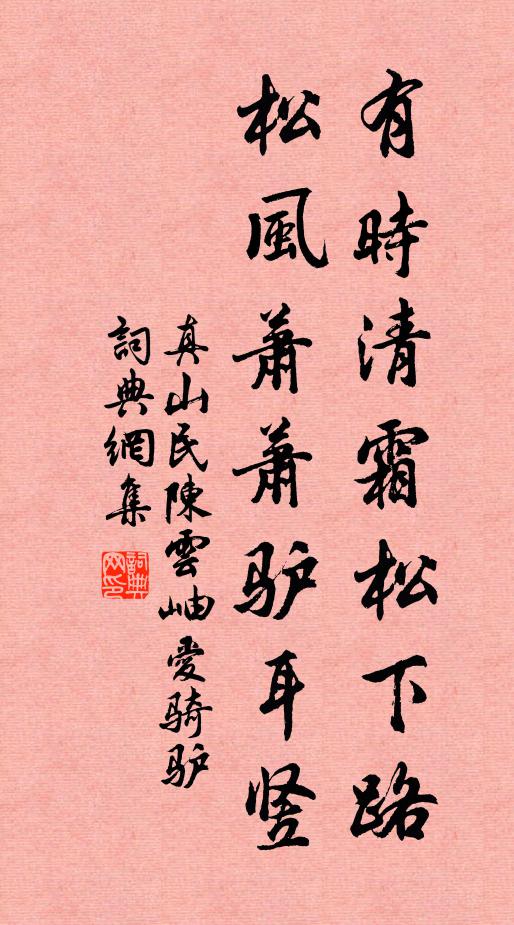 有時清霜松下路
松風萧萧驴耳竖
真山民陳雲岫愛骑驴
詞典網集
詞典网印